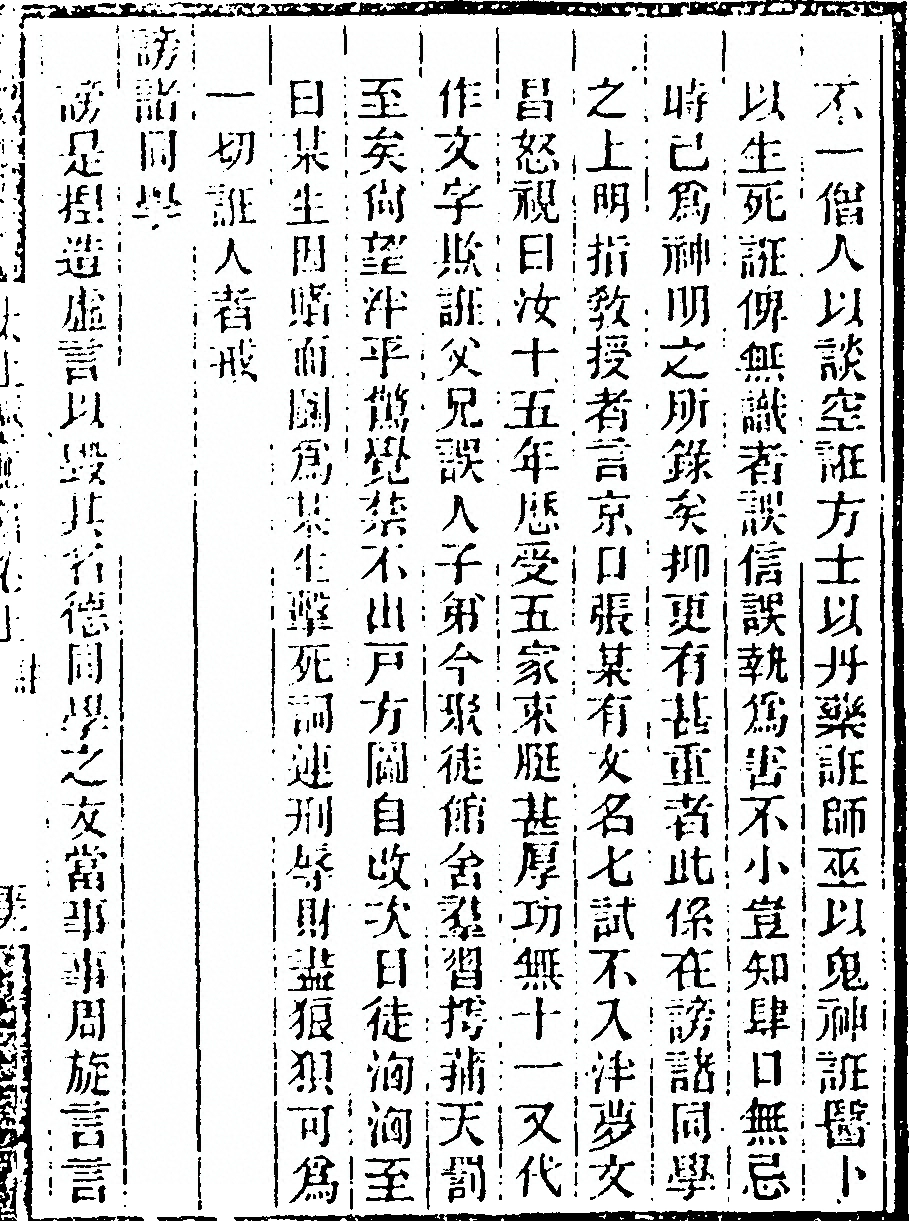 不一僧人以談空誑方士以丹藥誑師巫以鬼神誑醫卜
以生死誑俾無識者誤信誤執爲害不小豈知肆口無忌
時已爲神明之所錄矣抑更有甚重者此係在謗諸同學
之上明指敎授者言京口張某有文名七試不入泮夢文
昌怒視曰汝十五年歷受五家束脡甚厚功無十一又代
作文字欺誑父兄誤人子弟今聚徒館舍羣習摴蒱天罰
至矣尙望泮乎驚覺禁不出戸方圖自改次日徒洶洶至
曰某生因賭而鬭爲某生擊死詞連刑辱財盡狼狽可爲
一切誑人者戒
謗諸同學
謗是捏造虛言以毀其名德同學之友當事事周旋言言